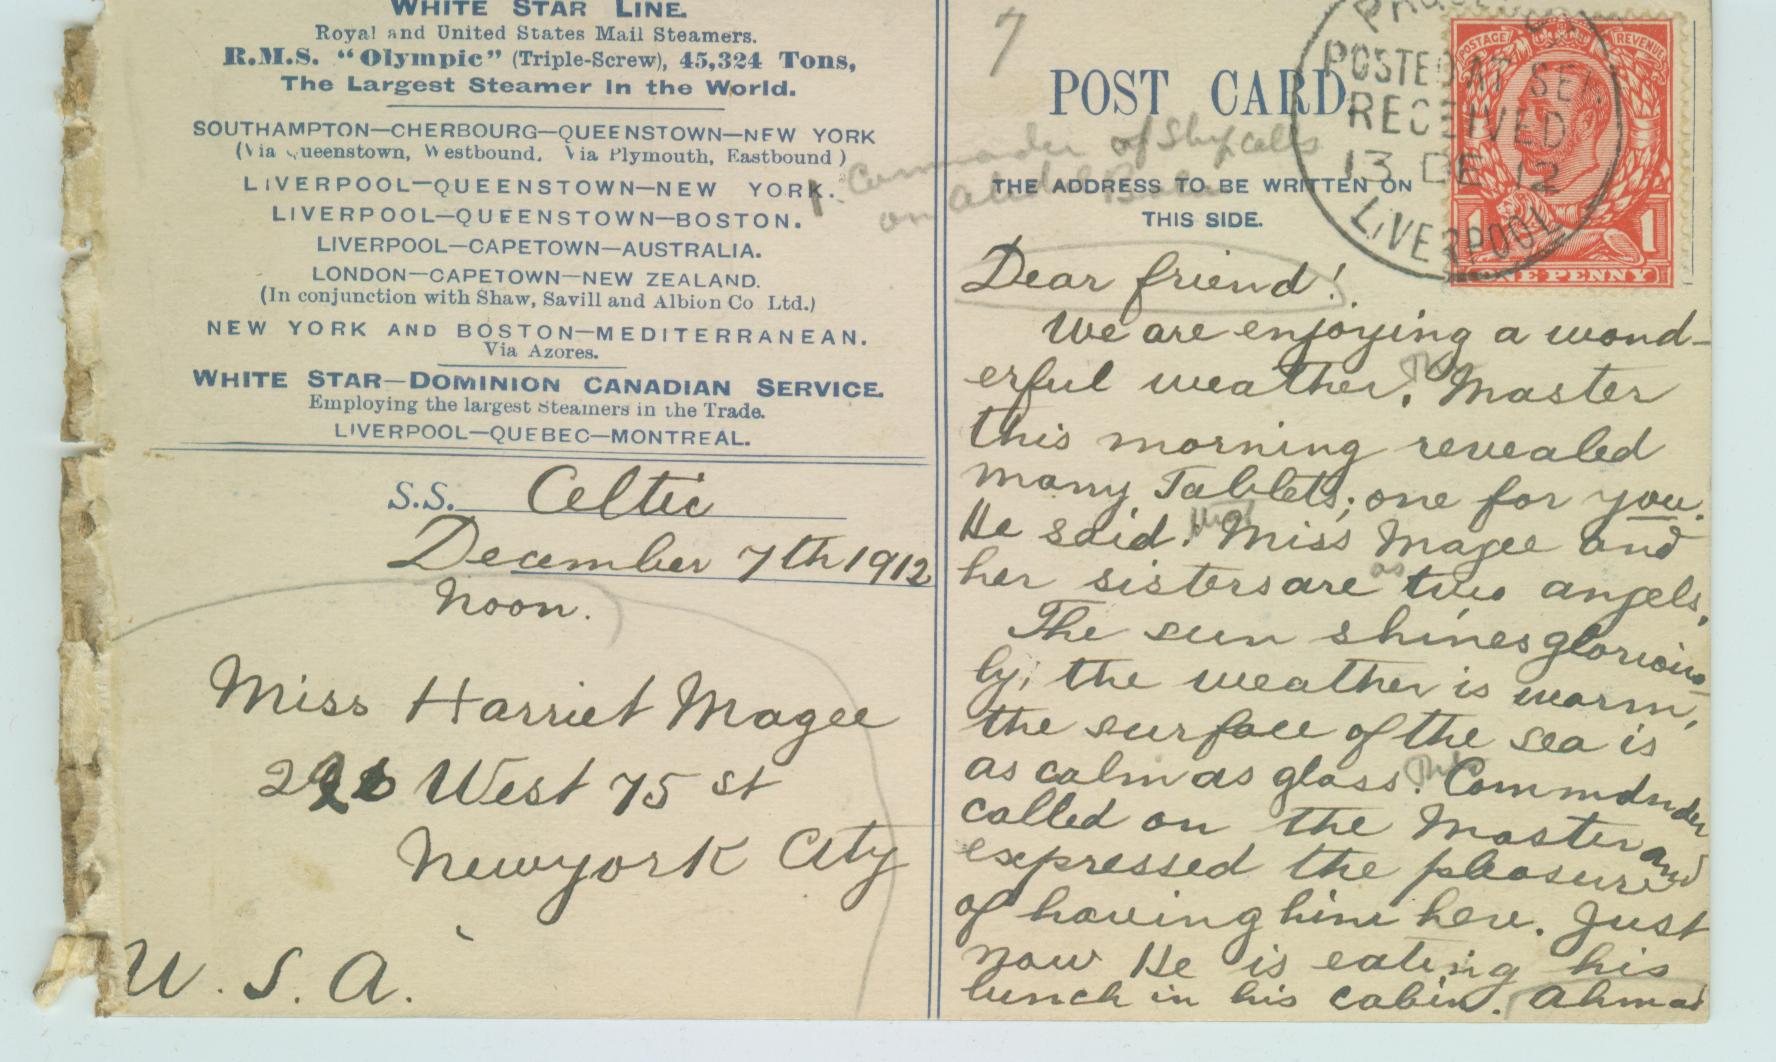 WHITE STAR LINE.
Royal and United States Mail Steamers.
R.M.S. "Olympic" (Triple-Screw), 45,324 Tons,
The Largest Steamer in the World.
SOUTHAMPTON—CHERBOURG—QUEENSTOWN—NEW YORK
(Via Queenstown, Westbound, Via Plymouth, Eastbound)
LIVERPOOL—QUEENSTOWN—NEW YORK.
LIVERPOOL—QUEENSTOWN—BOSTON.
LIVERPOOL—CAPETOWN—AUSTRALIA.
LONDON—CAPETOWN—NEW ZEALAND.
(In conjunction with Shaw, Savill and Albion Co Ltd.)
NEW YORK AND BOSTON—MEDITERRANEAN.
Via Azores.
WHITE STAR—DOMINION CANADIAN SERVICE.
Employing the largest Steamers in the Trade.
LIVERPOOL—QUEBEC—MONTREAL.
S.S. Celtic
December 7th 1912
Noon.
Miss Harriet Magee
West 75 st
Newyork City
U. S. A.
7
POST CARD
Commander of Ship calls
on Abdul Baha
THE ADDRESS TO BE WRITTEN ON
THIS SIDE.
POSTED AT SEA
RECEIVED
13 DE 12
LIVERPOOL
POSTAGE REVENUE
1 1
ONE PENNY
Dear friend!
We are enjoying a wond-
erful weather. The Master
this morning revealed
many Tablets; one for you.
He said: Miss Magee and
her sisters are as two angels.
The sun shines glorious-
ly; the weather is warm,
the surface of the sea is
as calm as glass. The Commander
called on the Master and
expressed the pleasure
of having him here. Just
now He is eating his
lunch in his cabin. Ahmad